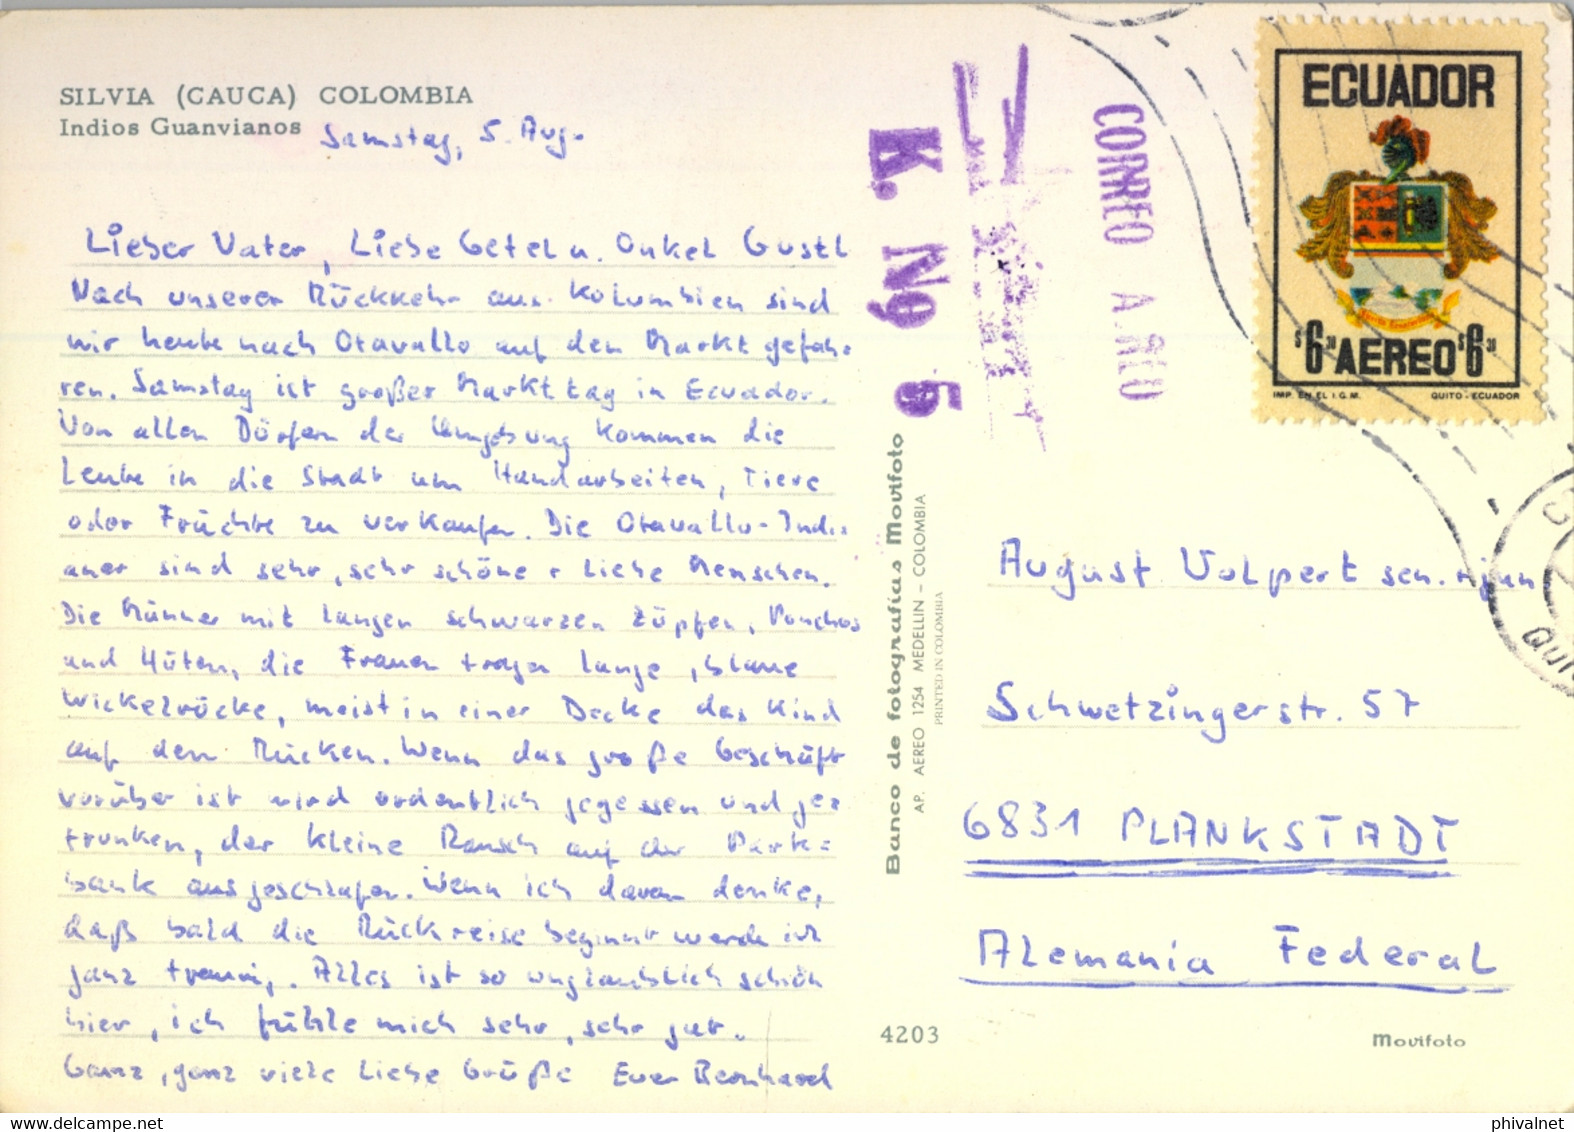 SILVIA (CAUCA) COLOMBIA
Indios Guanvianos
Samstag, 5. Aug.
Lieber Vater, Liebe Getel u. Onkel Gustl
Nach unserer Rückkehr aus Kolumbien sind
wir heute nach Otavallo auf den Markt gefah=
ren. Samstag ist großer Markttag in Ecuador.
Von allen Dörfern der Umgebung kommen die
Leute in die Stadt um Handarbeiten, Tiere
oder Früchte zu verkaufen. Die Otavallo-Indi=
aner sind sehr, sehr schöne + liebe Menschen.
Die Männer mit langen schwarzen Zöpfen, Ponchos
und Hüten, die Frauen tragen lange, blaue
Wickelröcke, meist in einer Decke das Kind
auf den Rücken. Wenn das große Geschäft
vorüber ist wird ordentlich gegessen und ge=
trunken, der kleine Rausch auf der Park=
bank ausgeschlafen. Wenn ich daran denke,
daß bald die Rückreise beginnt werde ich
ganz traurig. Alles ist so unglaublich schön
hier, ich fühle mich sehr, sehr gut.
Ganz, ganz viele Liebe Grüße Euer Bernhard
Banco de fotografías Movifoto
AP. AEREO 1254 MEDELLIN - COLOMBIA
PRINTED IN COLOMBIA
K. Nº 5
CORREO A.REO
ECUADOR
$6.30 AEREO $6.30
IMP. EN EL I.G.M. QUITO - ECUADOR
August Volpert sen. + jun
Schwetzingerstr. 57
6831 PLANKSTADT
Alemania Federal
4203
Movifoto
phivalnet